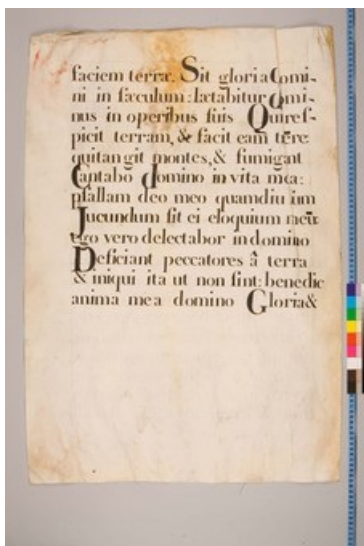 faciem terræ. Sit gloria Domi-
ni in sæculum: lætabitur Domi-
nus in operibus suis Qui res-
picit terram, & facit eam tr̄ere
qui tangit montes, & fumigant
Cantabo domino in vita mea:
psallam deo meo quamdiu sum
Jucundum sit ei eloquium meū
ego vero delectabor in domino
Deficiant peccatores â terra
& iniqui ita ut non sint: benedic
anima mea domino Gloria &